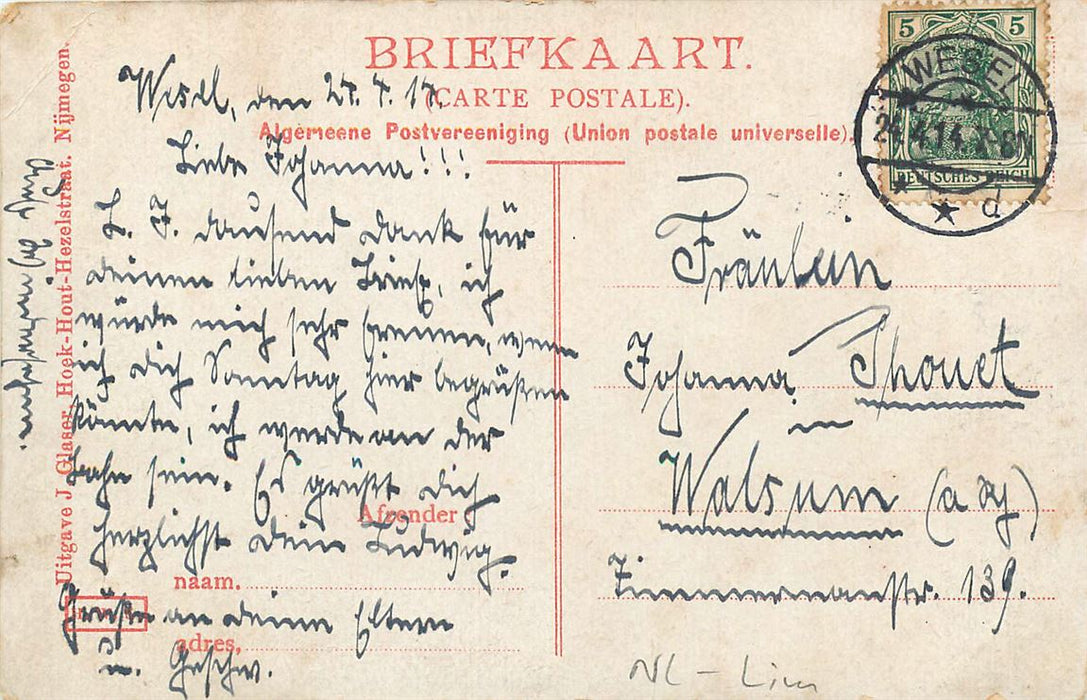 BRIEFKAART.
(CARTE POSTALE).
Algemeene Postvereeniging (Union postale universelle).
Wesel, den 24. 4. 14.
Liebe Johanna!!!
L. J. dausend Dank für
deinen lieben Brief, ich
würde mich sehr freuen, wenn
ich Dich Sonntag hier begrüßen
könnte, ich werde an der
Bahn sein. Es grüßt Dich
herzlichst Dein Ludwig.
Grüße an deine Eltern
u. Geschw.
Afzender
naam.
adres,
Uitgave J. Glaser, Hoek-Hout-Hezelstraat. Nijmegen.
5 5
DEUTSCHES REICH
WESEL
24.4.14.7-8
d
Fräulein
Johanna Thouet
in
Walsum (a Rh)
Zimmermanstr. 139.
NL - Lim